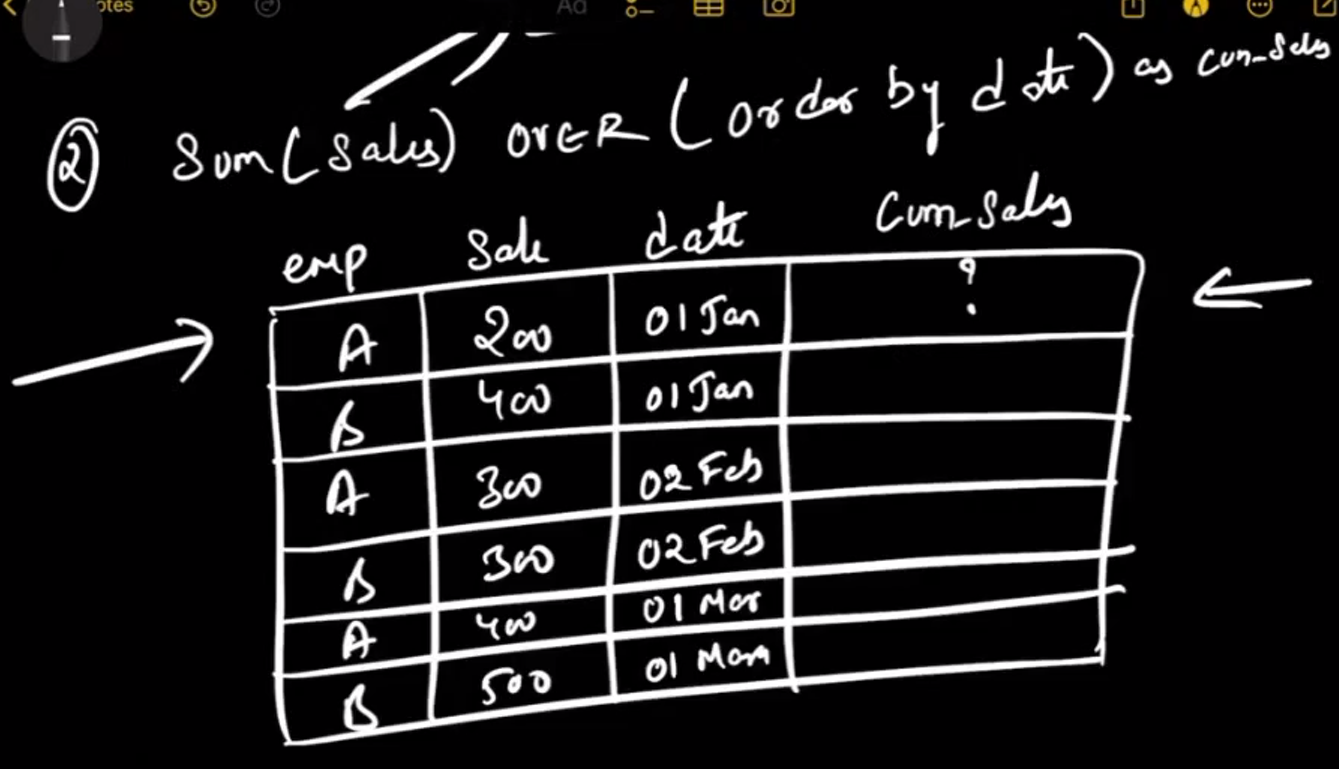 otes
Aa
② Sum(Sales) OVER (order by date) as cum_Sales
emp Sale date Cum_Sales
A 200 01 Jan ?
B 400 01 Jan
A 300 02 Feb
B 300 02 Feb
A 400 01 Mar
B 500 01 Mar